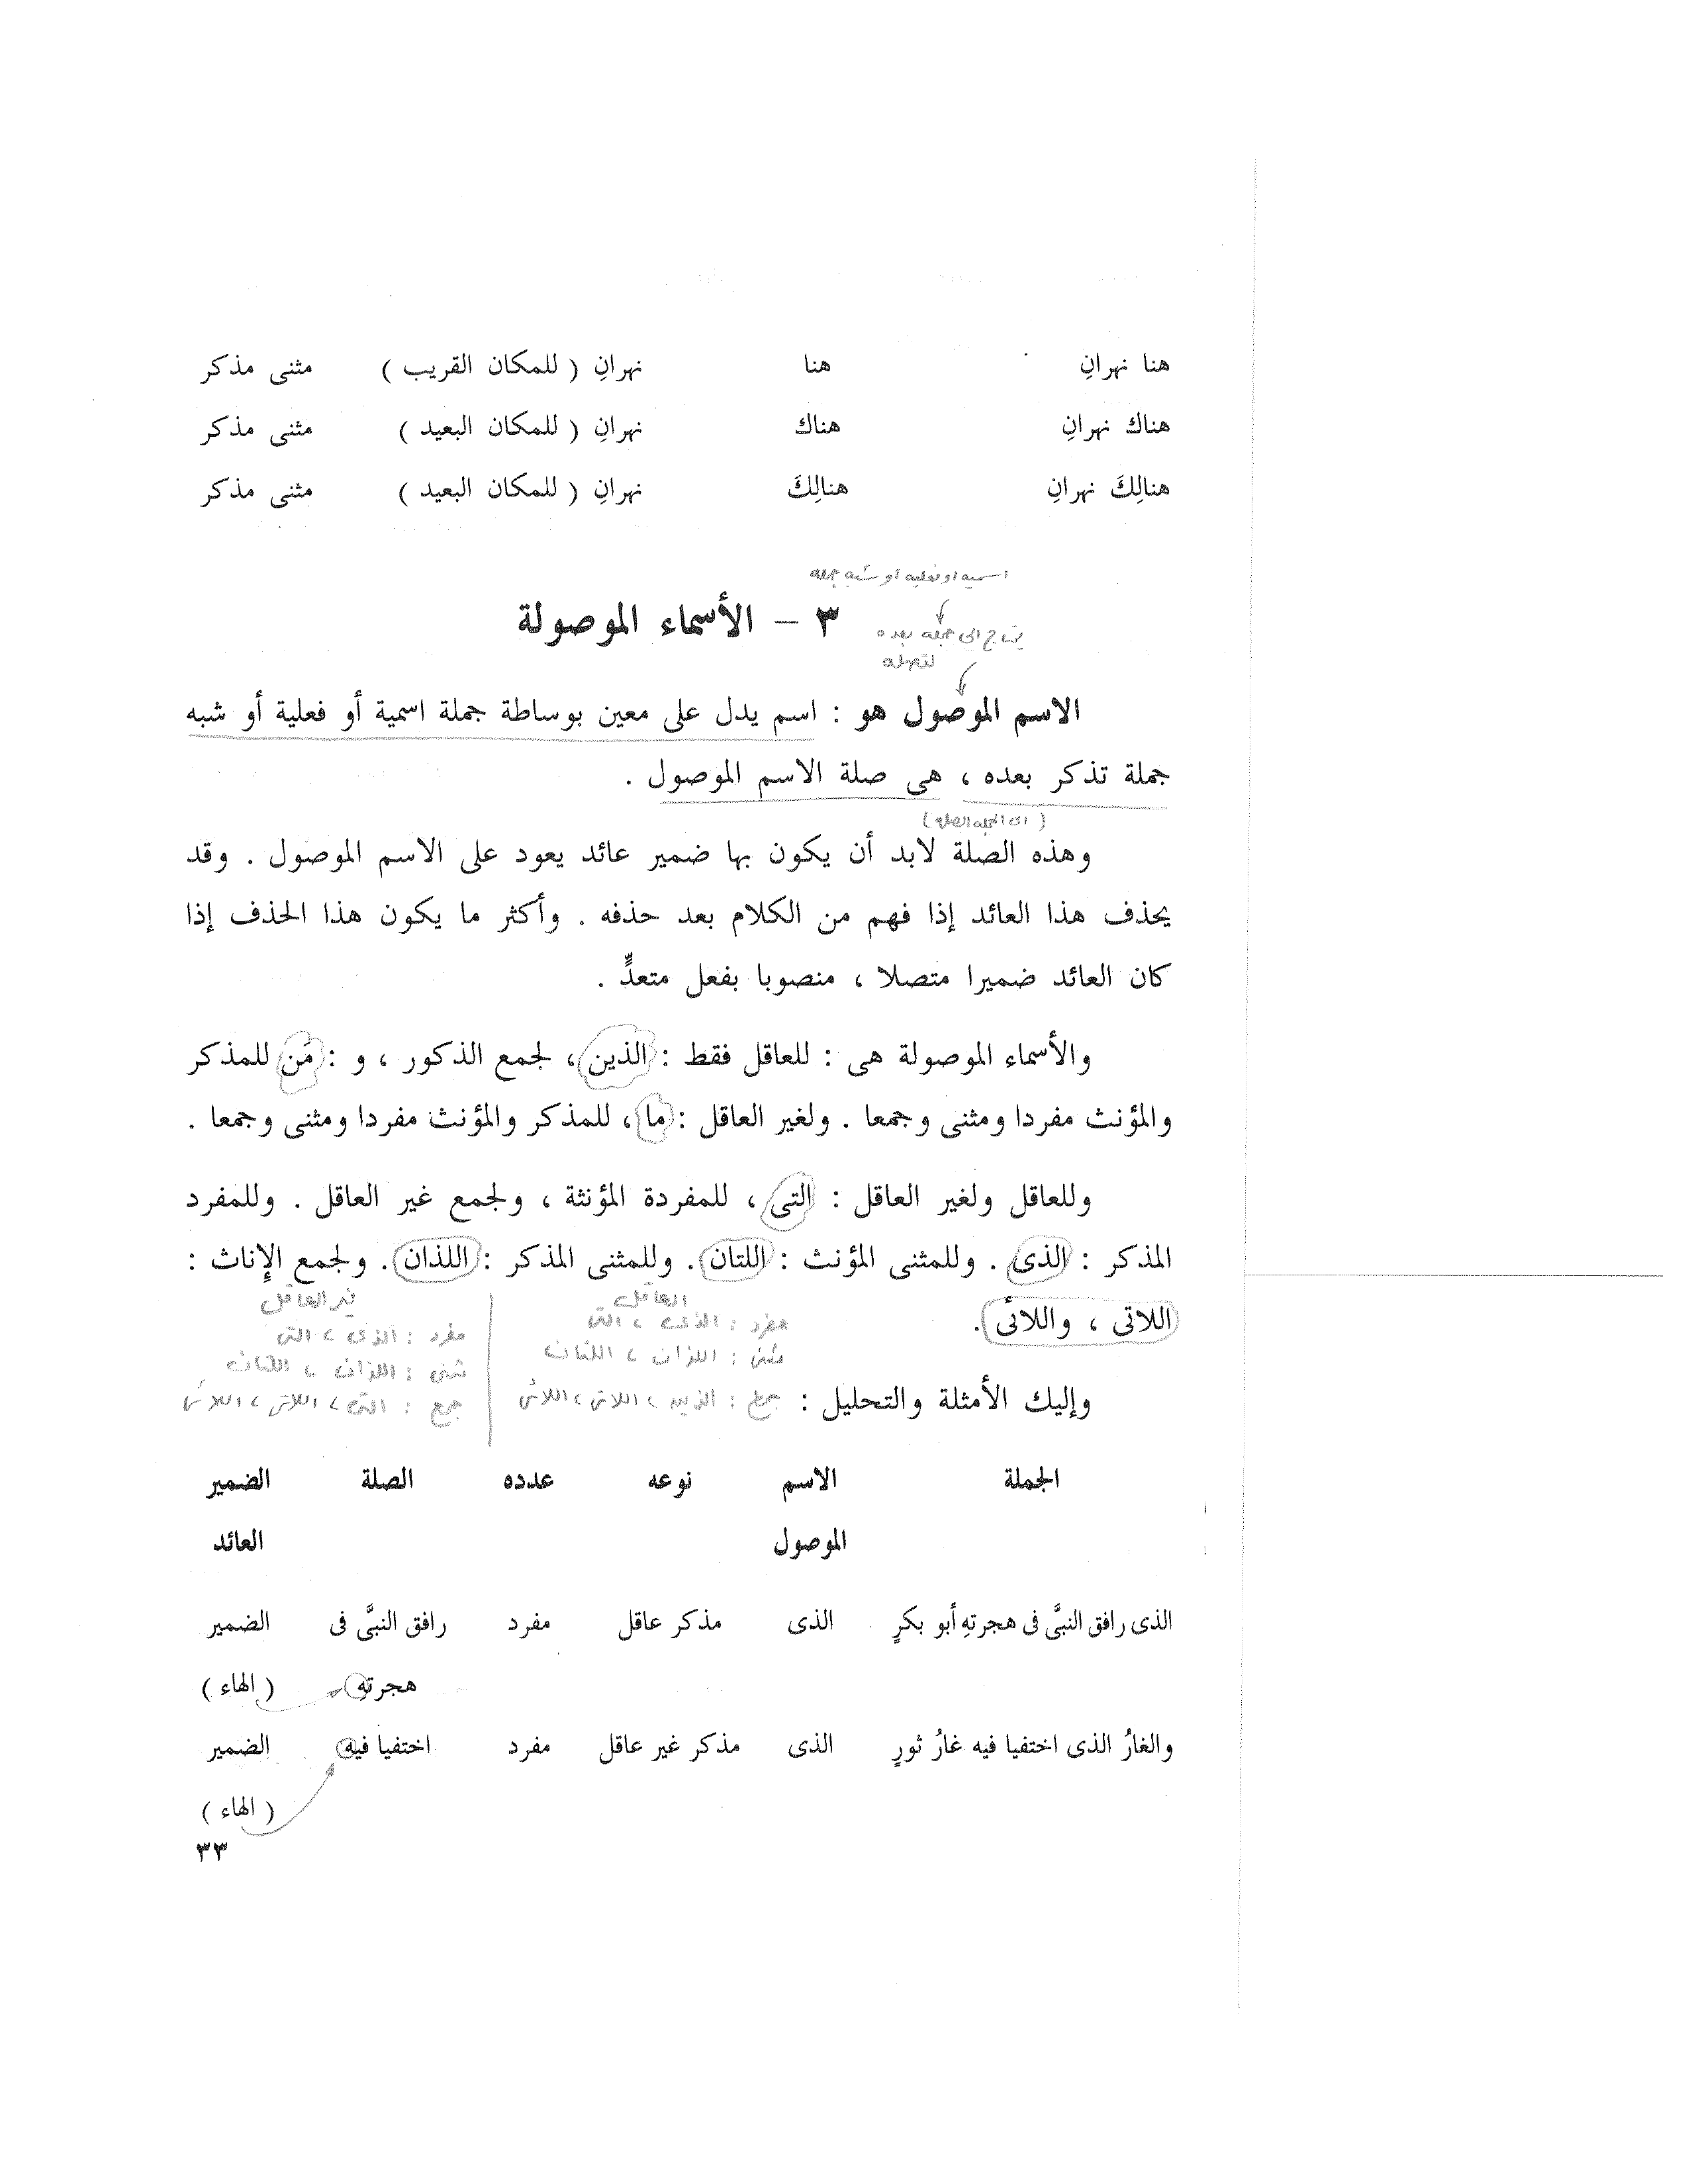 هنا نهرانِ هنا نهرانِ ( للمكان القريب ) مثنى مذكر
هناك نهرانِ هناك نهرانِ ( للمكان البعيد ) مثنى مذكر
هنالِكَ نهرانِ هنالِكَ نهرانِ ( للمكان البعيد ) مثنى مذكر
اسميه او فعليه او شبه جمله
٣ – الأسماء الموصولة
يحتاج الى جمله بعده
لتصله
الاسم الموصول هو : اسم يدل على معين بوساطة جملة اسمية أو فعلية أو شبه
جملة تذكر بعده ، هى صلة الاسم الموصول .
( اى الجمله الصله )
وهذه الصلة لابد أن يكون بها ضمير عائد يعود على الاسم الموصول . وقد
يحذف هذا العائد إذا فهم من الكلام بعد حذفه . وأكثر ما يكون هذا الحذف إذا
كان العائد ضميرا متصلا ، منصوبا بفعل متعدٍّ .
والأسماء الموصولة هى : للعاقل فقط : الذين ، لجمع الذكور ، و : مَن للمذكر
والمؤنث مفردا ومثنى وجمعا . ولغير العاقل : ما ، للمذكر والمؤنث مفردا ومثنى وجمعا .
وللعاقل ولغير العاقل : التى ، للمفردة المؤنثة ، ولجمع غير العاقل . وللمفرد
المذكر : الذى . وللمثنى المؤنث : اللتان . وللمثنى المذكر : اللذان . ولجمع الإناث :
اللاتى ، واللائى .
العاقل
مفرد : الذى ، التى
مثنى : اللذان ، اللتان
جمع : الذين ، اللاتى ، اللائى
غير العاقل
مفرد : الذى ، التى
مثنى : اللذان ، اللتان
جمع : التى ، اللاتى ، اللائى
وإليك الأمثلة والتحليل :
الجملة الاسم نوعه عدده الصلة الضمير
الموصول العائد
الذى رافق النبىَّ فى هجرتهِ أبو بكرٍ الذى مذكر عاقل مفرد رافق النبىَّ فى الضمير
هجرتهِ ( الهاء )
والغارُ الذى اختفيا فيه غارُ ثورٍ الذى مذكر غير عاقل مفرد اختفيا فيه الضمير
( الهاء )
٣٣